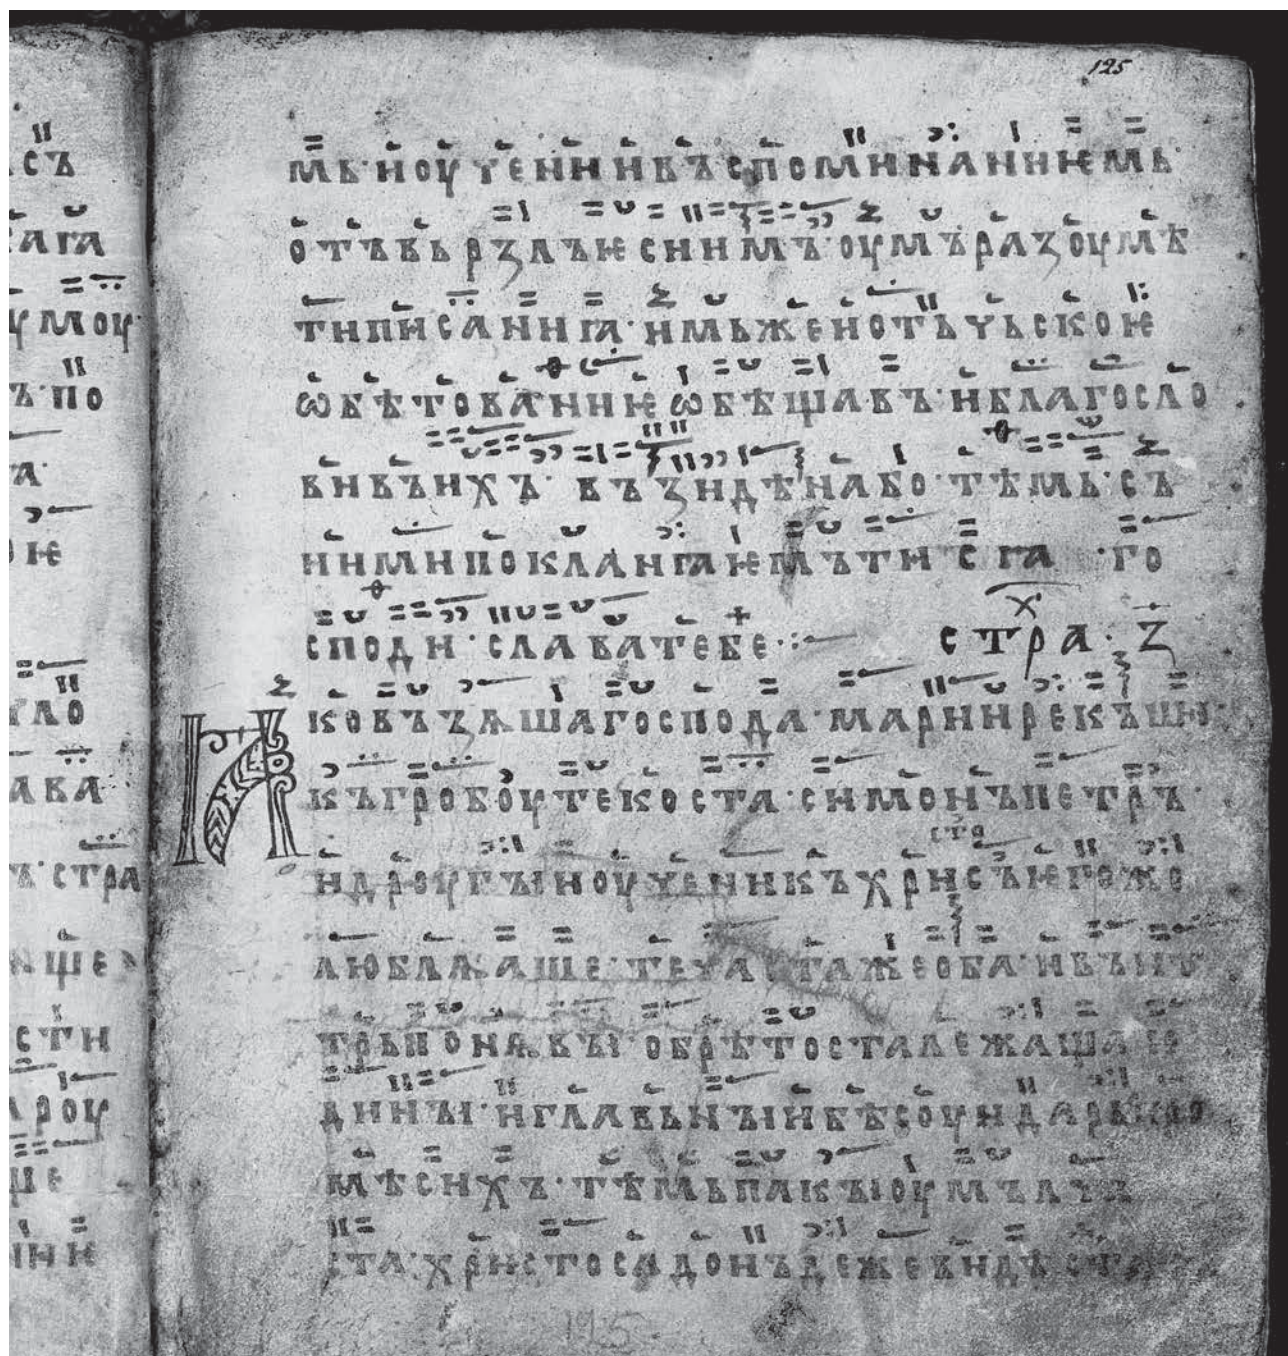 125
мь·и оучении въспоминаниѥмь·
отъвьрзлъ ѥси имъ·оумъ разоумѣ
ти писаниꙗ·имьже но отьчьскоѥ
ѡбѣтованиѥ ѡбѣщавъ·и благосло
вивъ ихъ· възиде на бо·тѣмь·съ
ними покланꙗѥмъ ти сꙗ ·го
споди·слава тебе·:
стрⷯа·з
ко възѧша господа·марии рекъши
къ гробоу текоста·симонъ петръ·
и дроугыи оученикъ хрисъ ѥгоже
люблꙗаше·течаста же оба·и вънѫ
трь понѧвы обрѣтоста лежаща ѥ
дины·и главьныи бѣ соударь кро
мѣ сихъ·тѣмь пакы оумълча
ста·христоса доньдеже видѣста
125
съ
ага
оумоу·
ъ·по
а·
оѥ
ло
ава
ъ·стра
ше
сти
роу
ше